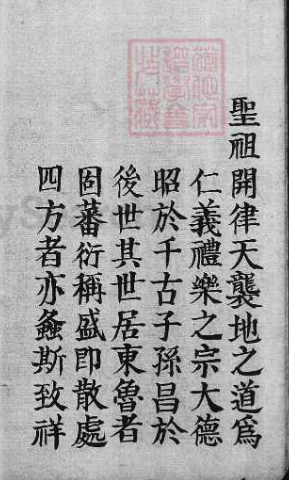 聖祖開律天襲地之道為
仁義禮樂之宗大德
昭於千古子孫昌於
後世其世居東魯者
固蕃衍稱盛即散處
四方者亦螽斯致祥